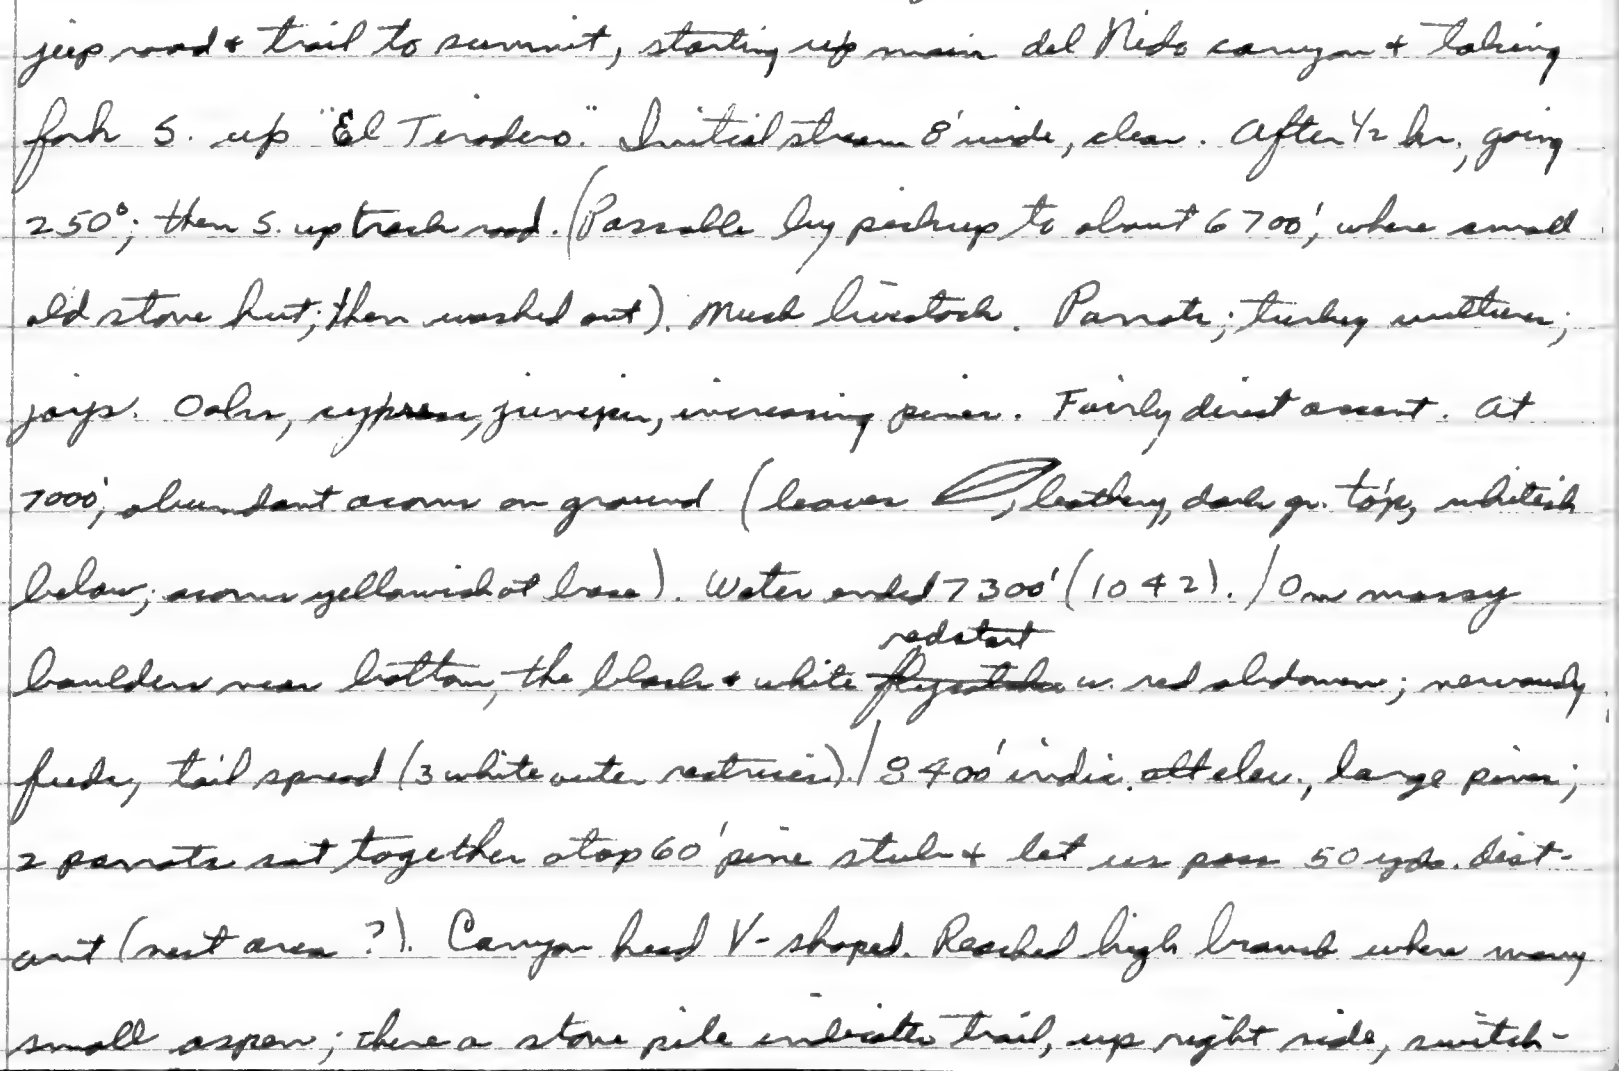 jeep road & trail to summit, starting up main del Nido canyon & taking
fork S. up "El Tiradero." Initial stream 8' wide, clear. After 1/2 hr., going
250°; then S. up track road. (Passable by pickup to about 6700', where small
old stone hut; then washed out). Much livestock. Parrots; turkey vultures;
jays. Oaks, cypress, juniper, increasing pines. Fairly direct ascent. At
7000', abundant acorns on ground (leaves , leathery, dark gr. top, whitish
below; acorns yellowish at base). Water ended 7300' (1042). / On mossy
boulders near bottom, the black & white flycatcher redstart w. red abdomen; nervously
feeds, tail spread (3 white outer rectrices). / 8400' indic. alt elev., large pines;
2 parrots sat together atop 60' pine stub & let us pass 50 yds. dist-
ant (nest area?). Canyon head V-shaped. Reached high branch where many
small aspen; there a stone pile indicates trail, up right side, switch-